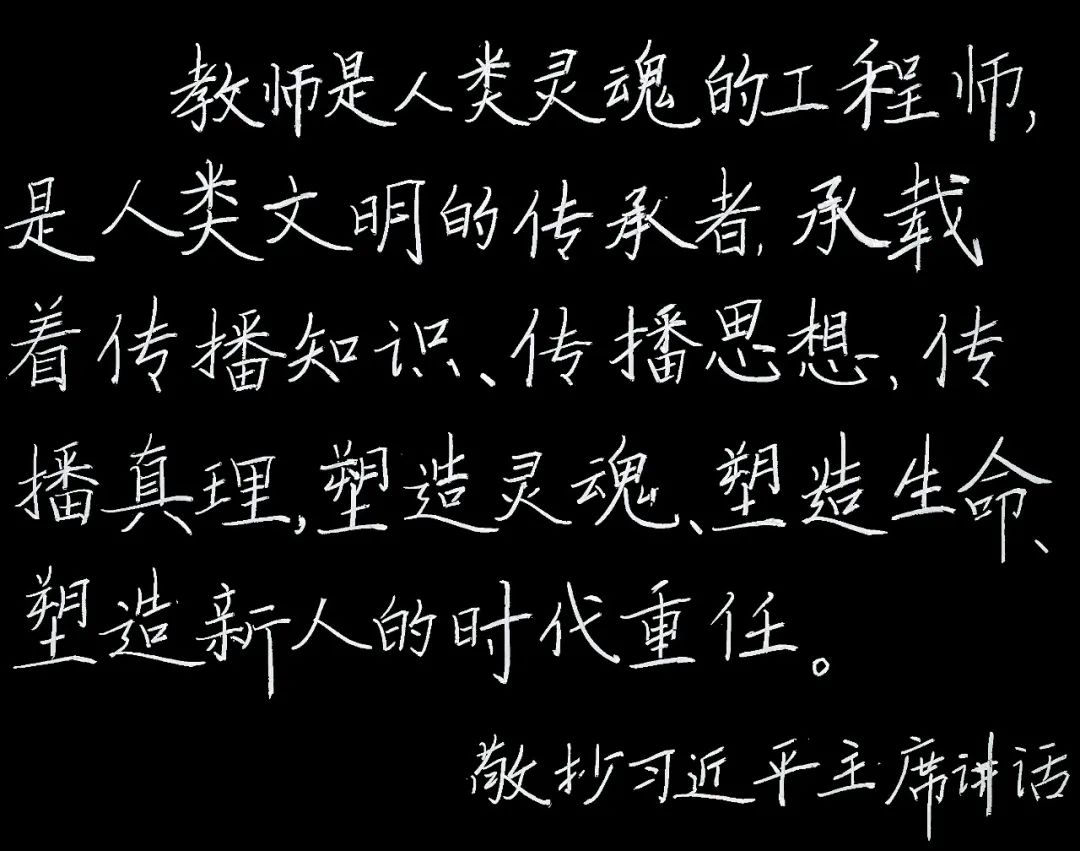 教师是人类灵魂的工程师,
是人类文明的传承者,承载
着传播知识、传播思想、传
播真理,塑造灵魂、塑造生命、
塑造新人的时代重任。
敬抄习近平主席讲话